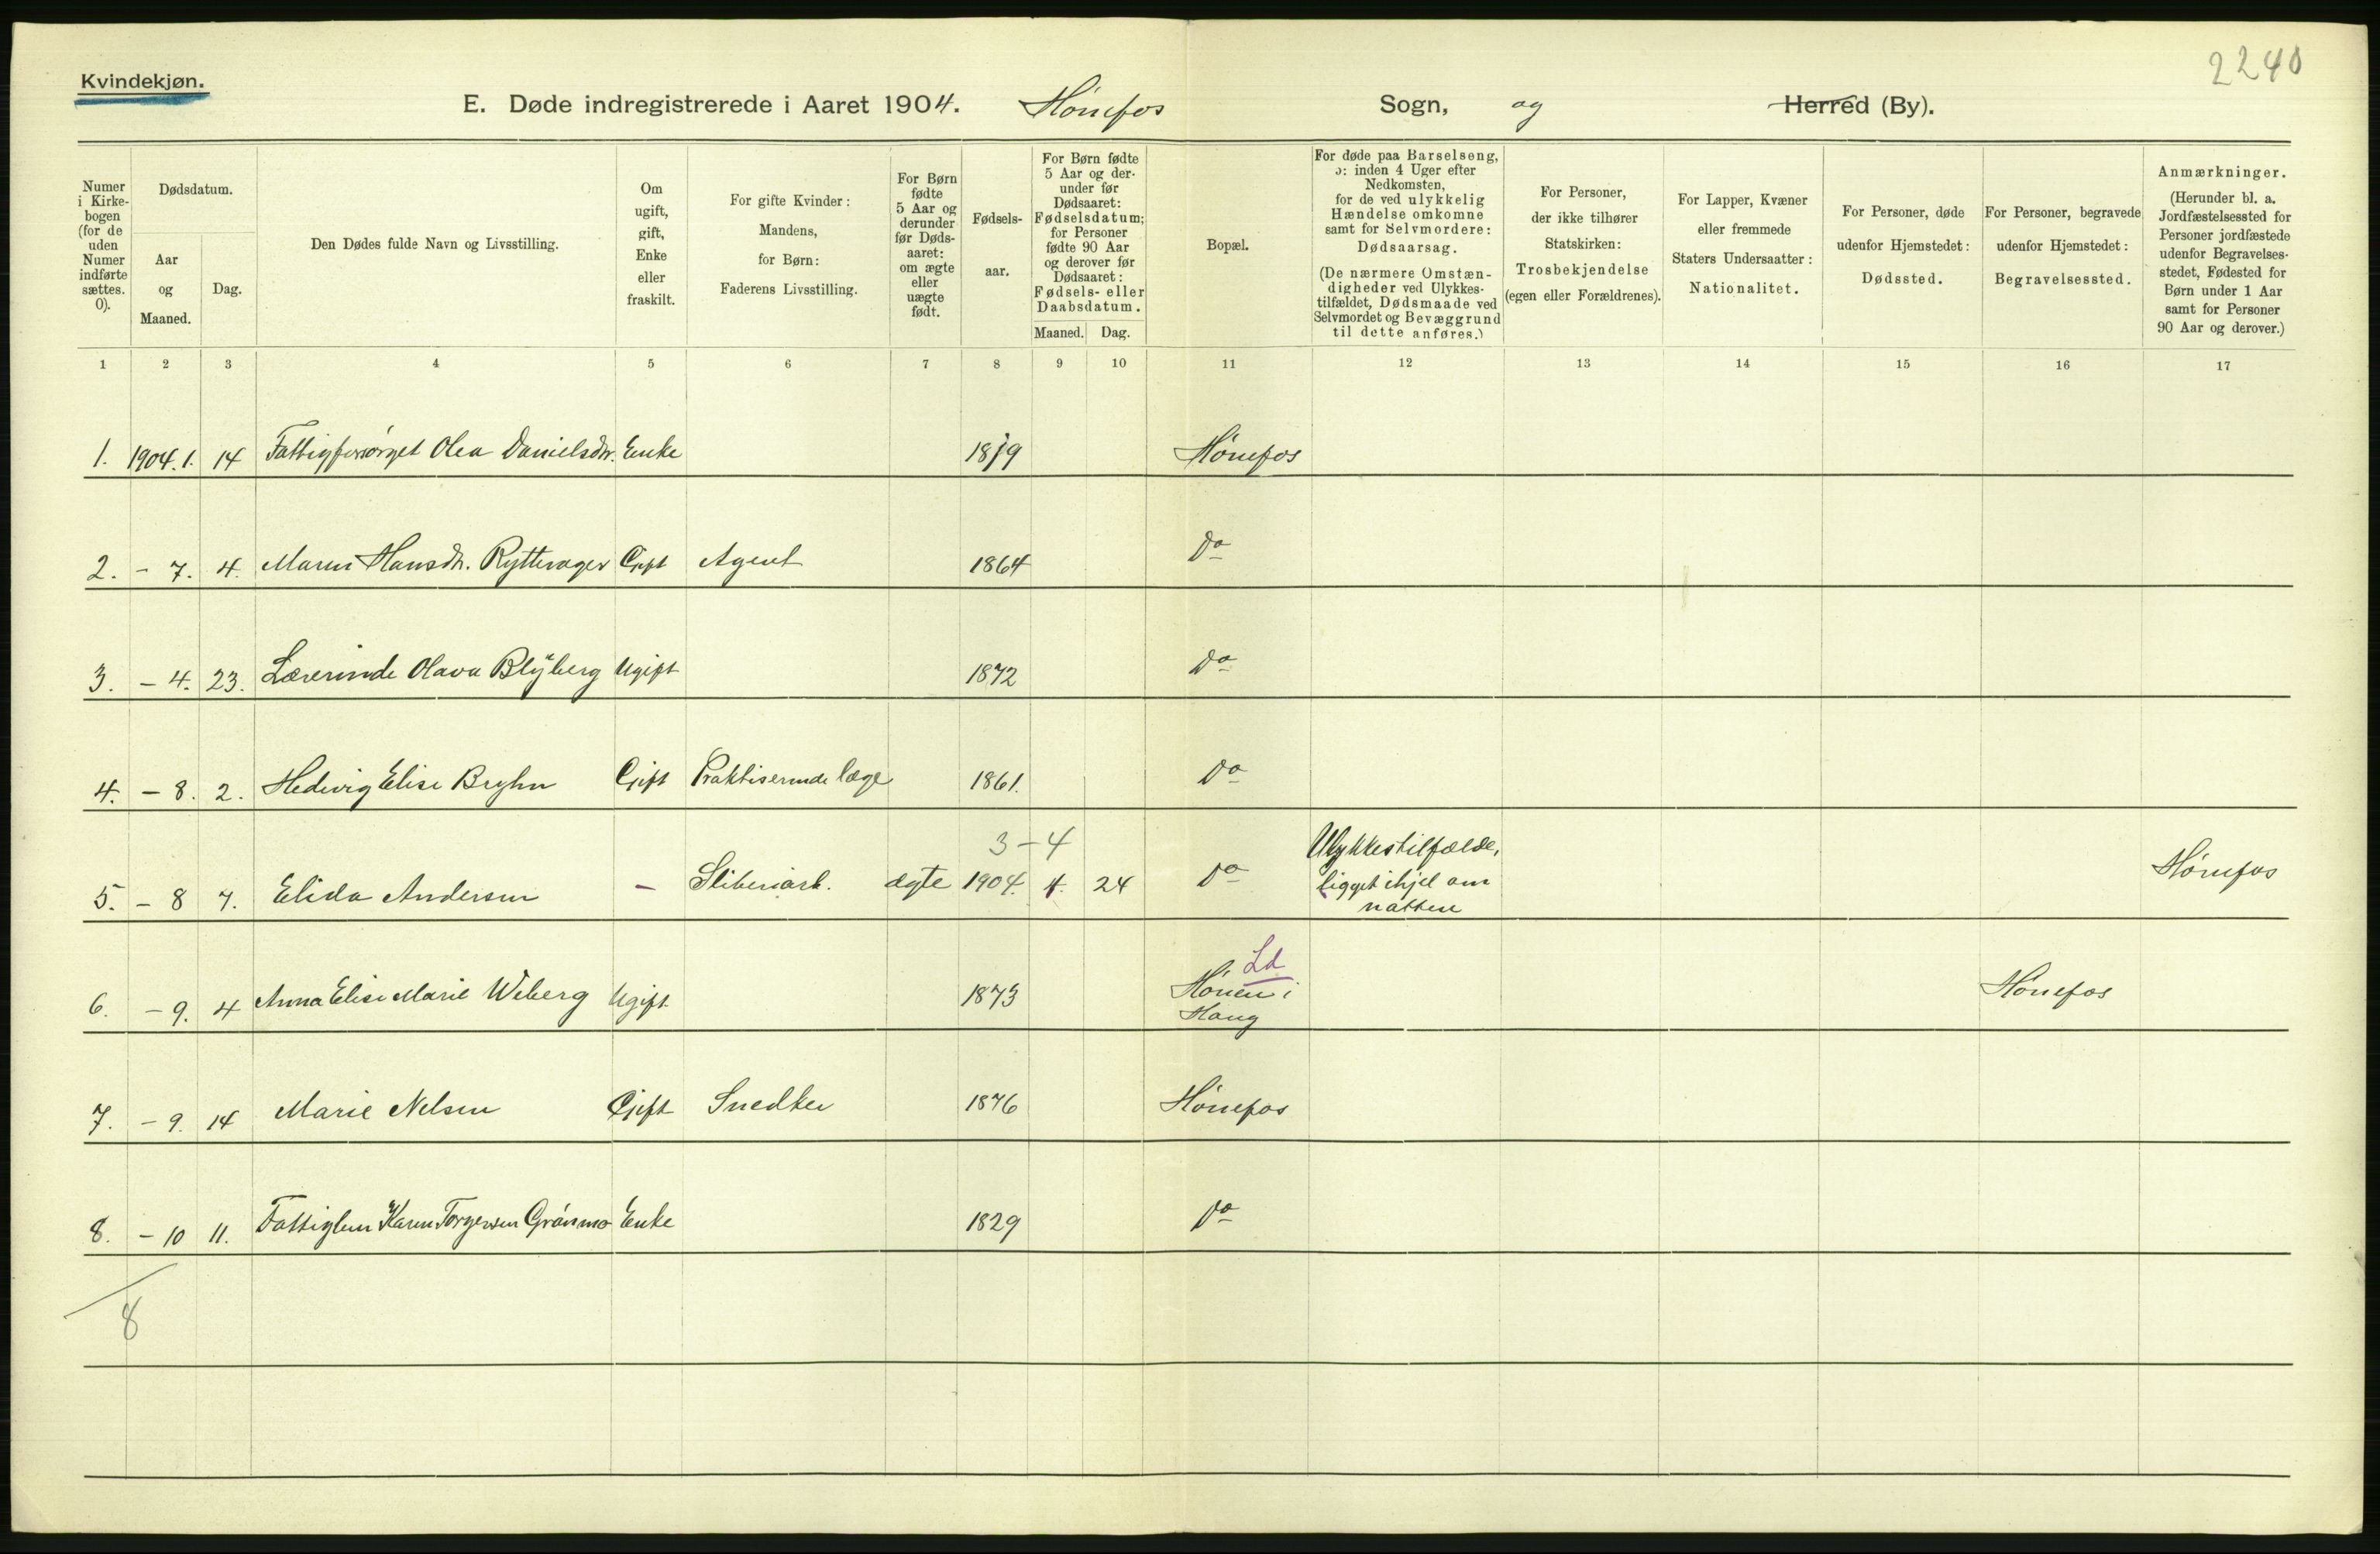 2240
Kvindekjøn.
E. Døde indregistrerede i Aaret 1904. Hønefos Sogn, og Herred (By).
Numer i Kirkebogen (for de uden Numer indførte sættes. 0).
Dødsdatum.
Aar og Maaned.
Dag.
Den Dødes fulde Navn og Livsstilling.
Om ugift, gift, Enke eller fraskilt.
For gifte Kvinder: Mandens, for Børn: Faderens Livsstilling.
For Børn fødte 5 Aar og derunder før Dødsaaret: om ægte eller uægte født.
Fødselsaar.
For Børn fødte 5 Aar og derunder før Dødsaaret: Fødselsdatum; for Personer fødte 90 Aar og derover før Dødsaaret: Fødsels- eller Daabsdatum.
Maaned. Dag.
Bopæl.
For døde paa Barselseng, ɔ: inden 4 Uger efter Nedkomsten, for de ved ulykkelig Hændelse omkomne samt for Selvmordere: Dødsaarsag.
(De nærmere Omstændigheder ved Ulykkestilfældet, Dødsmaade ved Selvmordet og Bevæggrund til dette anføres.)
For Personer, der ikke tilhører Statskirken: Trosbekjendelse (egen eller Forældrenes).
For Lapper, Kvæner eller fremmede Staters Undersaatter: Nationalitet.
For Personer, døde udenfor Hjemstedet: Dødssted.
For Personer, begravede udenfor Hjemstedet: Begravelsessted.
Anmærkninger.
(Herunder bl. a. Jordfæstelsessted for Personer jordfæstede udenfor Begravelsesstedet, Fødested for Børn under 1 Aar samt for Personer 90 Aar og derover.)
1 2 3 4 5 6 7 8 9 10 11 12 13 14 15 16 17
1. 1904. 1. 14 Fattigforsørget Olea Danielsdr. Enke 1819 Hønefos
2. - 7. 4. Maren Hansdr. Rytterager Gift Agent 1864 Do
3. - 4. 23. Lærerinde Olava Blÿberg Ugift 1872 Do
4. - 8. 2. Hedevig Elise Bryhn Gift Praktiserende læge 1861. Do
3-4
5. - 8 7. Elida Andersen - Sliberiarb. ægte 1904. 4. 24 Do Ulykkestilfælde, ligget ihjel om natten Hønefos
Ld
6. - 9. 4 Anna Elise Marie Wiberg Ugift 1873 Hønen i Haug Hønefos
7. - 9. 14 Marie Nelsen Gift Snedker 1876 Hønefos
8. - 10 11. Fattiglem Karen Torgersen Grønmo Enke 1829 Do
8